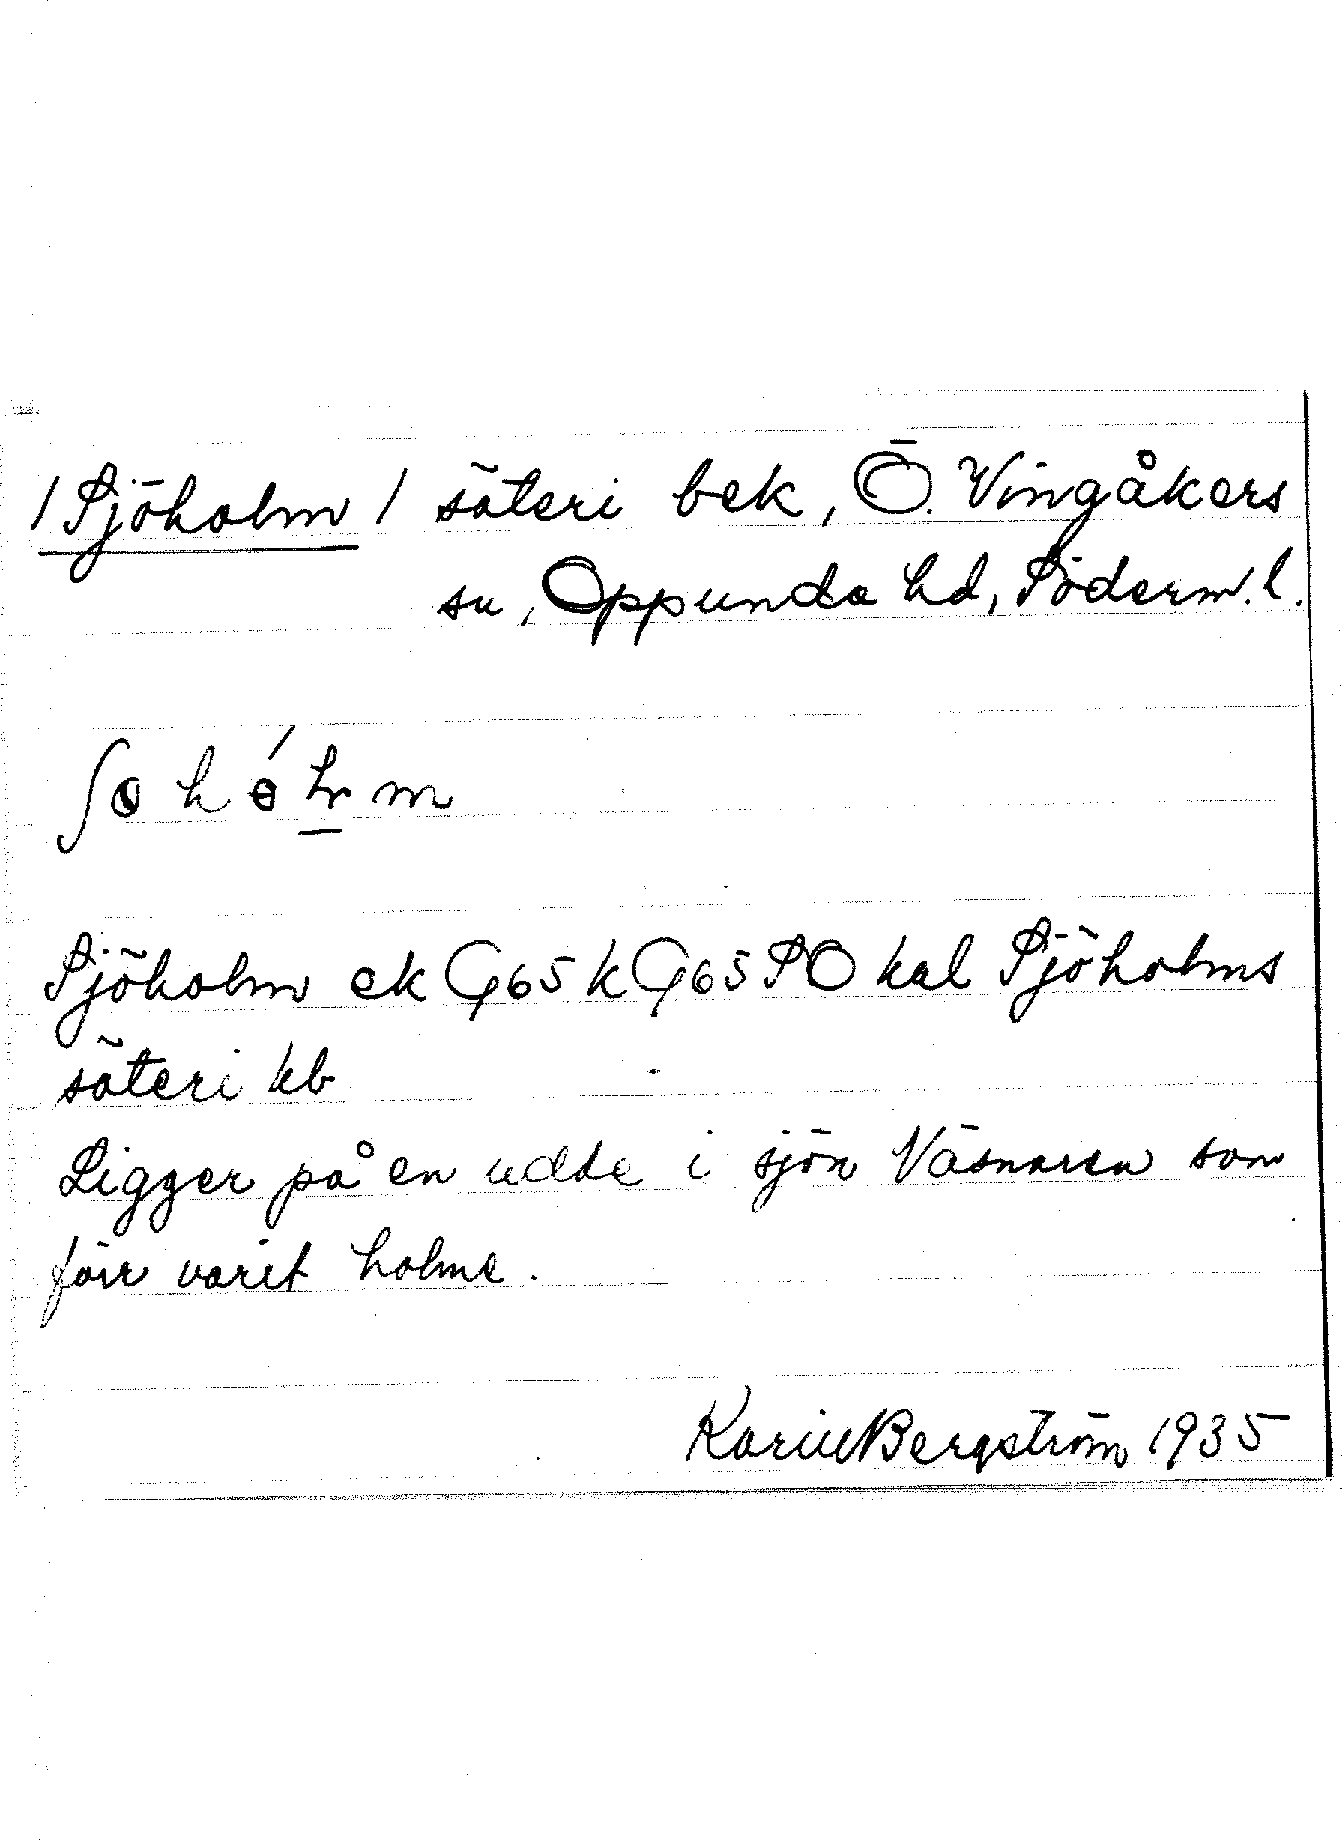 /Sjöholm/ säteri bek, Ö. Vingåkers
sn, Oppunda hd, Söderm. l.
Sjöholm ek G65 k G65 SO kal Sjöholms
säteri kb
Ligger på en udde i sjön Väsnaren som
förr varit holme.
Karin Bergström 1935